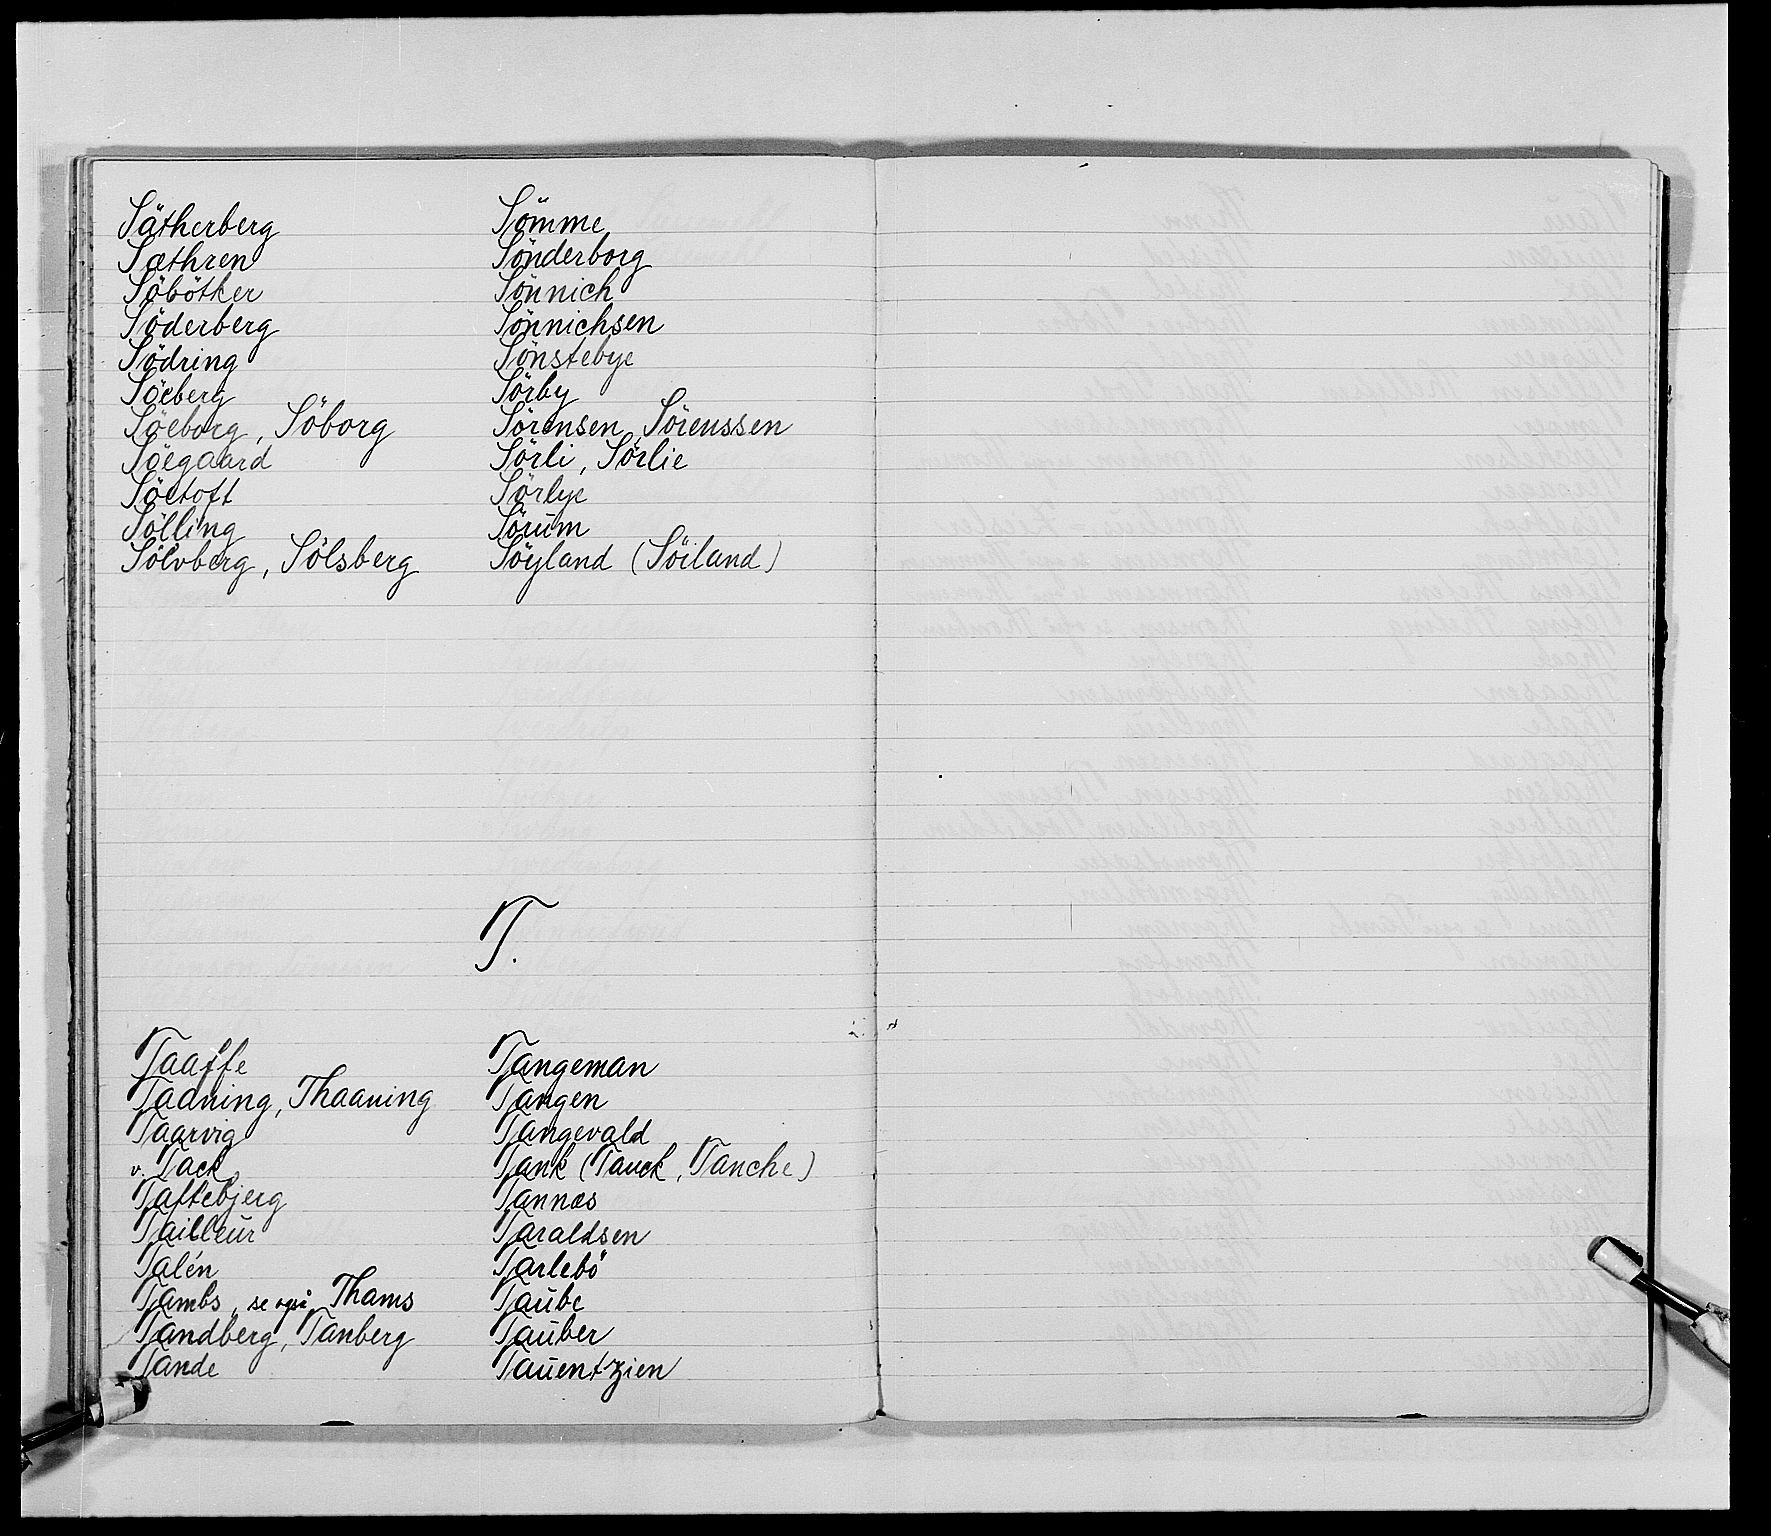 Sätherberg
Sæthren
Söbötker
Söderberg
Södring
Söeberg
Söeborg, Söborg
Söegaard
Söetoft
Sölling
Sölvberg, Sölsberg
Sömme
Sönderborg
Sönnich
Sönnichsen
Sönstebye
Sörby
Sörensen, Sörenssen
Sörli, Sörlie
Sörlye
Sörum
Söyland (Söiland)
T.
Taaffe
Taaning, Thaaning
Taarvig
v. Tack
Taftebjerg
Tailleur
Talén
Tambs, se også Thams
Tandberg, Tanberg
Tande
Tangeman
Tangen
Tangevald
Tank (Tanck, Tanche)
Tannæs
Taraldsen
Tarlebö
Taube
Tauber
Tauentzien